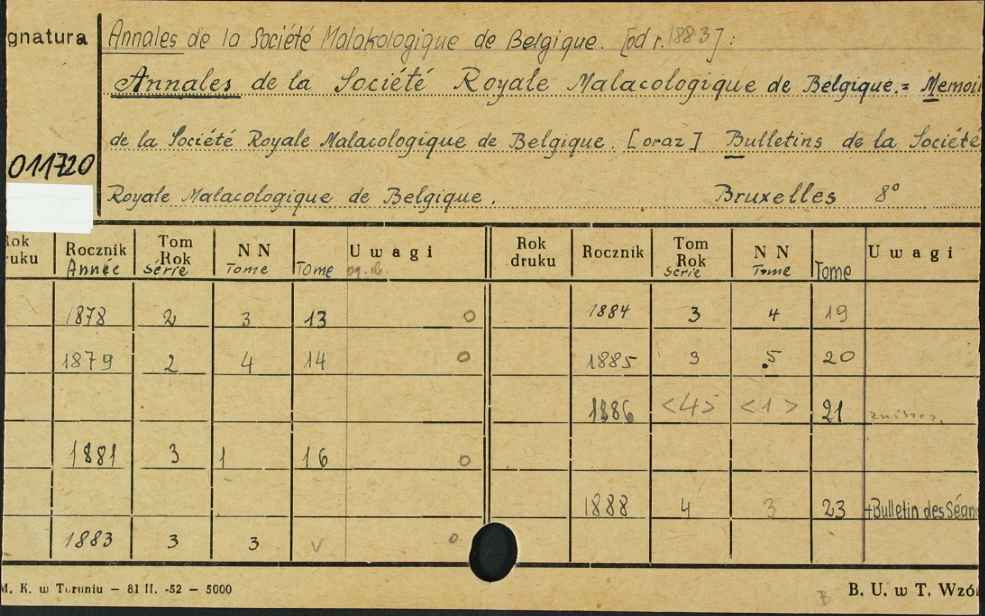 gnatura Annales de la Société Malakologique de Belgique. [od r. 1883]:
Annales de la Société Royale Malacologique de Belgique. = Memoi
de la Société Royale Malacologique de Belgique. [oraz] Bulletins de la Société
011720
Royale Malacologique de Belgique. Bruxelles 8°
Rok Rocznik Tom N N Uwagi Rok Rocznik Tom N N Uwagi
ruku Année Rok Tome Tome druku Rok Tome Tome
série serie
1878 2 3 13 0 1884 3 4 19
1879 2 4 14 0 1885 3 5 20
1886 <4> <1> 21
1881 3 1 16 0
1888 4 3 23 +Bulletin des Séan
1883 3 3 V 0
M. K. w Toruniu — 81 II. -52 — 5000 B B. U. w T. Wzó